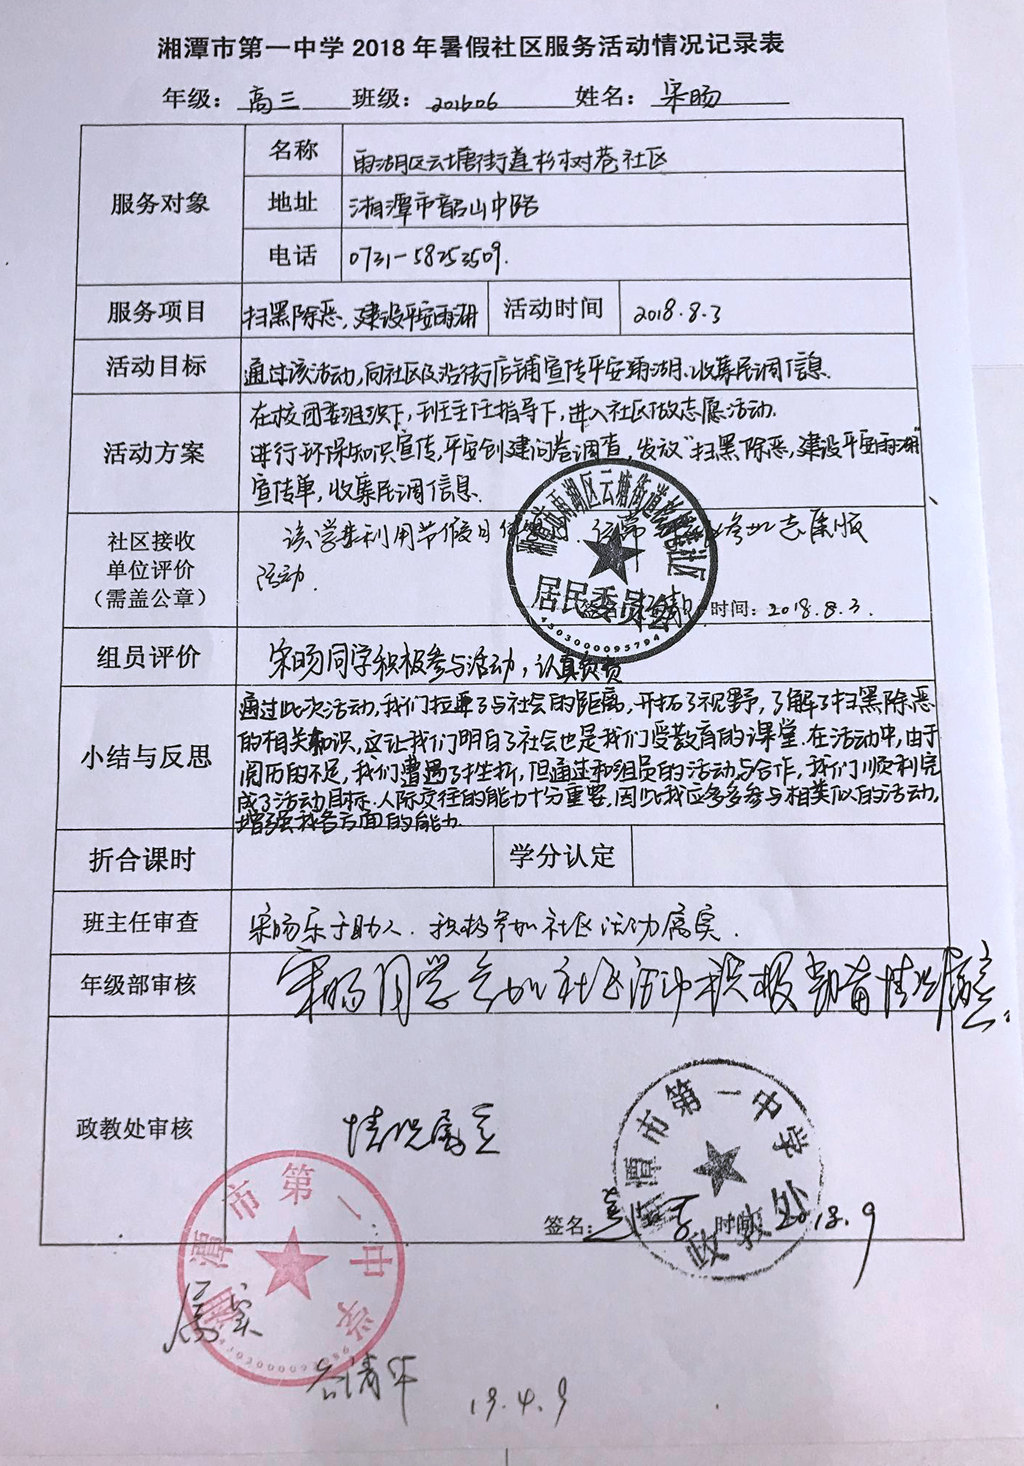 湘潭市第一中学2018年暑假社区服务活动情况记录表
年级：高三 班级：201606 姓名：宋旸
服务对象
名称 雨湖区云塘街道杉树巷社区
地址 湘潭市韶山中路
电话 0731-58253509.
服务项目 扫黑除恶，建设平安雨湖 活动时间 2018.8.3
活动目标 通过该活动，向社区及沿街店铺宣传平安雨湖、收集民调信息.
活动方案
在校团委组织下，班主任指导下，进入社区做志愿活动.
进行环保知识宣传，平安创建问卷调查，发放“扫黑除恶，建设平安雨湖”
宣传单，收集民调信息.
社区接收
单位评价
（需盖公章）
该学生利用节假日 志愿服
活动.
时间：2018.8.3.
居民委员会
4303000095794
组员评价 宋旸同学积极参与活动，认真负责
小结与反思
通过此次活动，我们拉近了与社会的距离，开拓了视野，了解了扫黑除恶
的相关知识，这让我们明白了社会也是我们受教育的课堂.在活动中，由于
阅历的不足，我们遭遇了挫折，但通过和组员的活动与合作，我们顺利完
成了活动目标.人际交往的能力十分重要，因此我应多多参与相类似的活动，
增强我各方面的能力.
折合课时 学分认定
班主任审查 宋旸乐于助人.积极参加社区活动属实.
年级部审核 宋旸同学参加社区活动积极 情况属实.
政教处审核
情况属实
湘潭市第一中学
政教处
签名： 时间：2018.9
湘潭市第一中学
属实
19.4.9